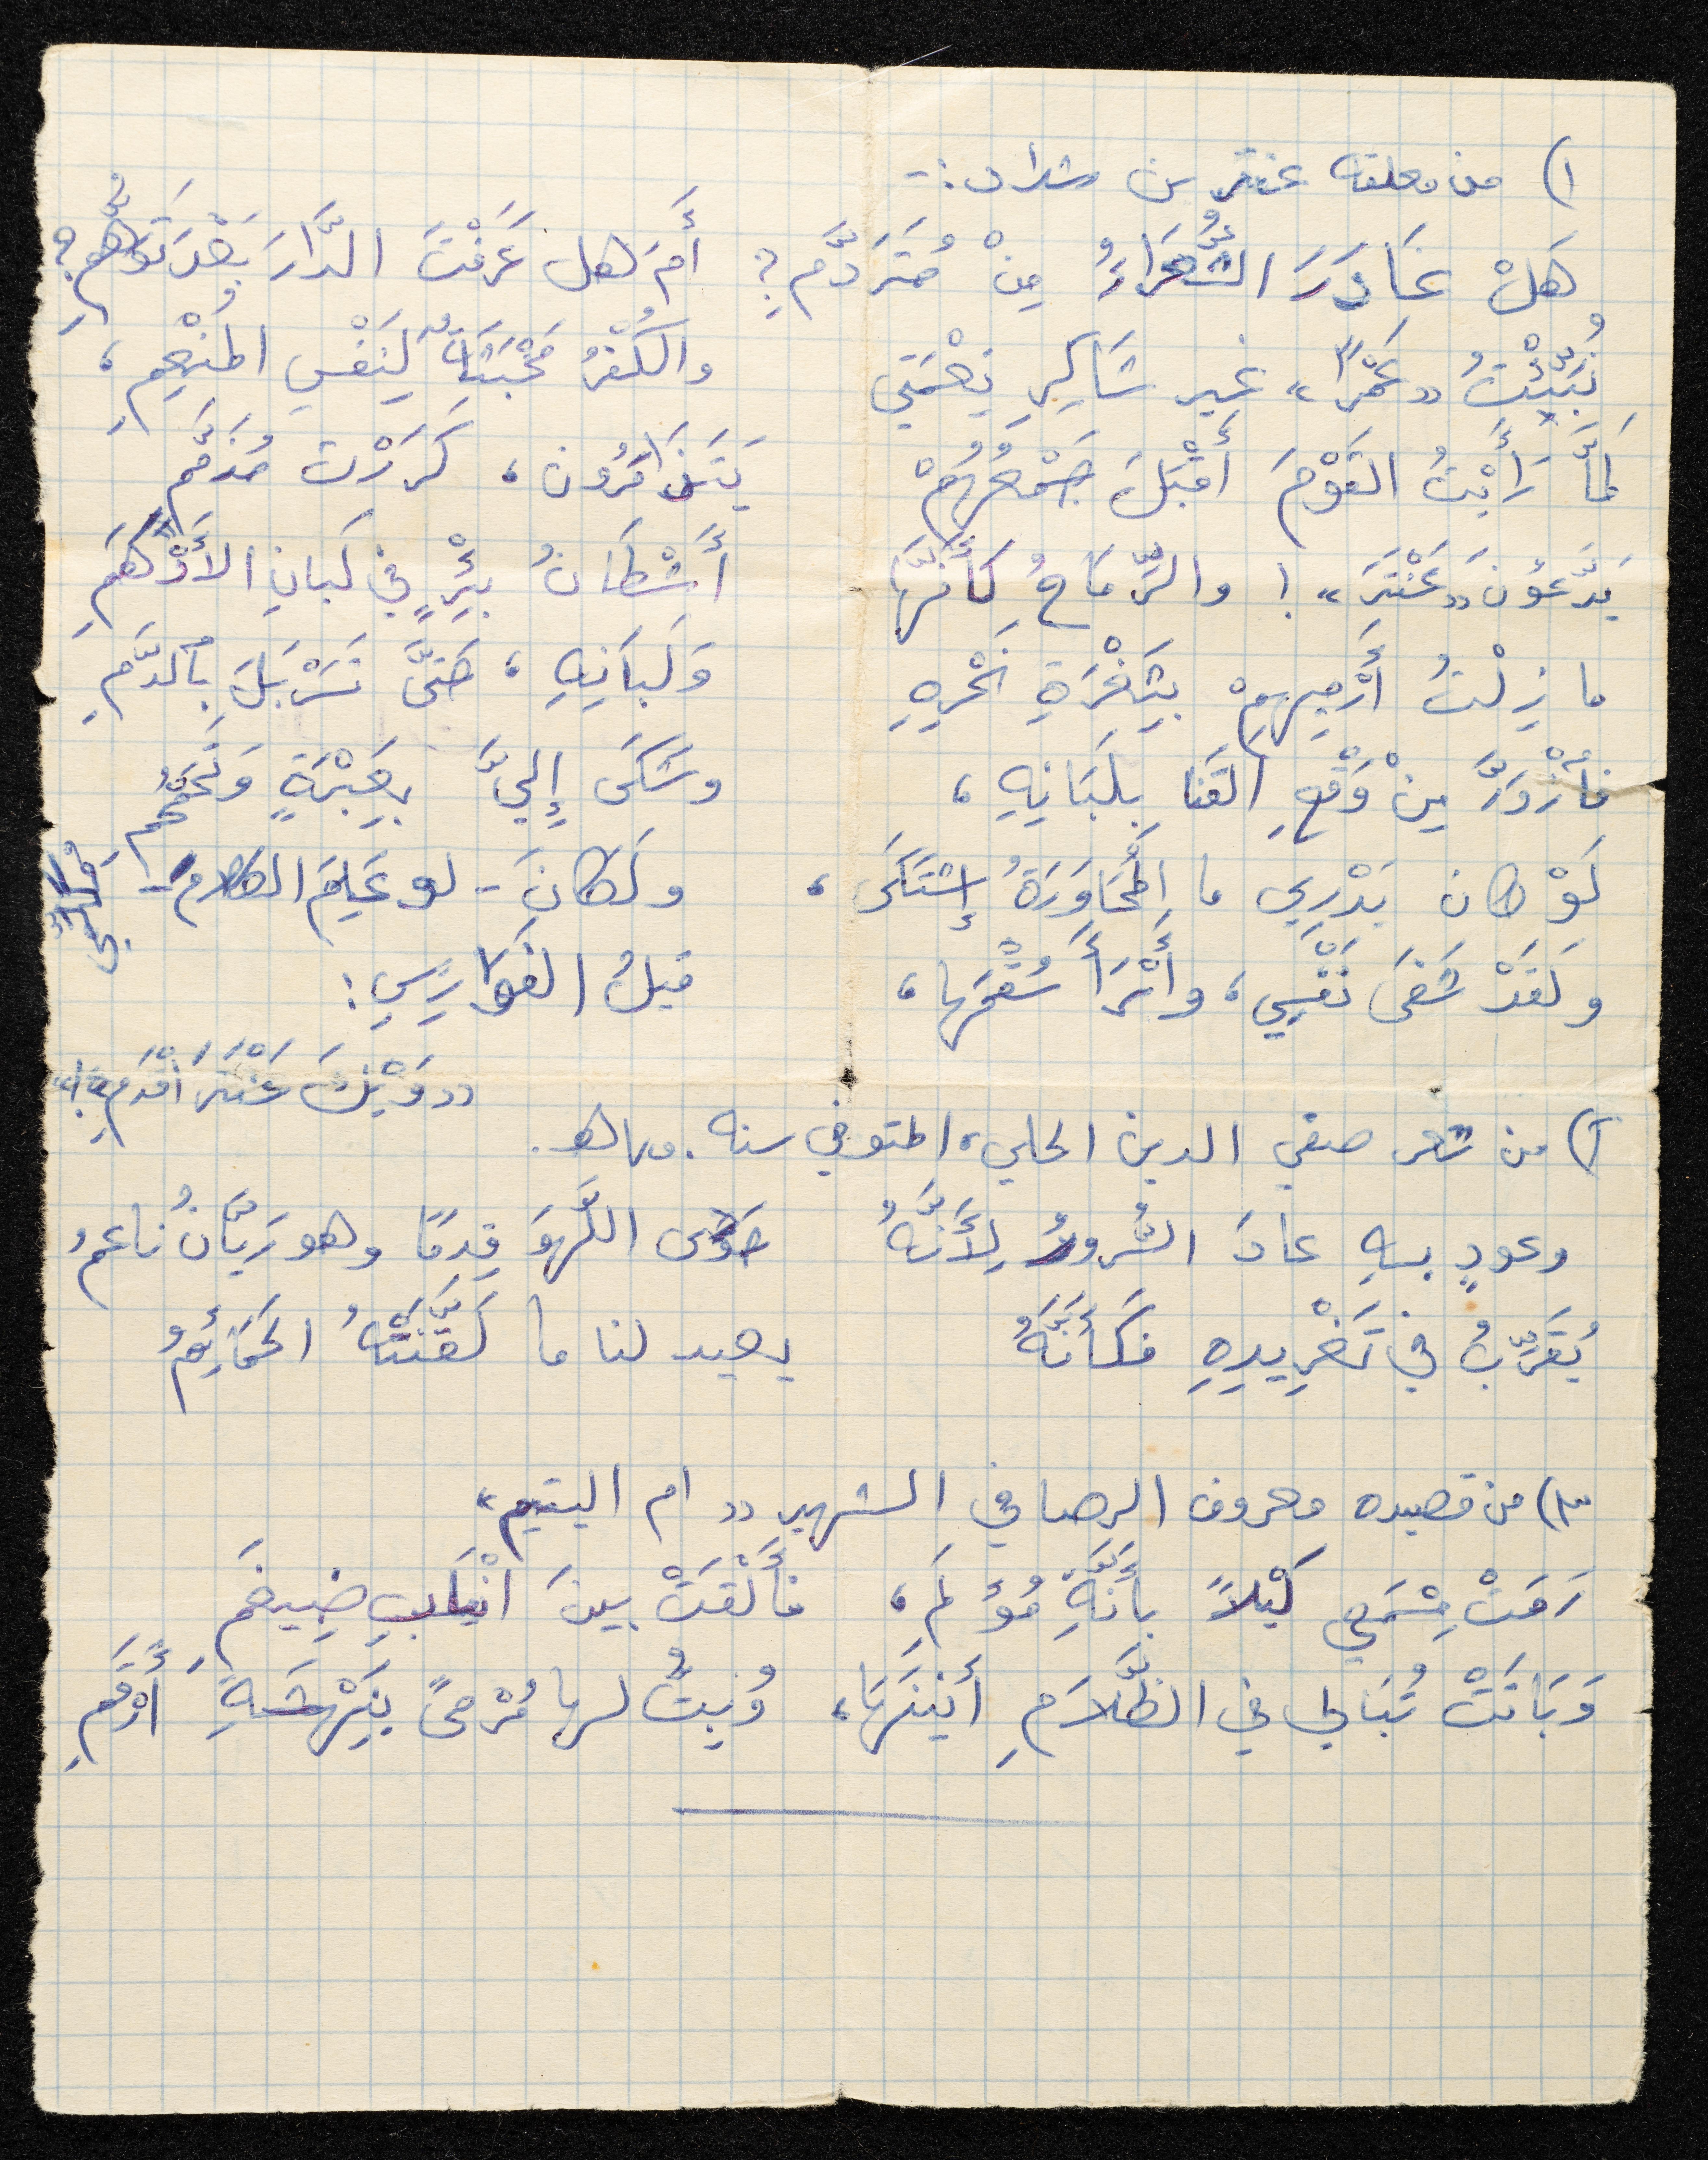 ١) من معلقه عنتر بن شداد :-
هَلْ غَادَرَ الشُّعَرَاءُ مِنْ مُتَرَدَّمِ ؟ أَمْ هل عَرَفْتَ الدَّارَ بَعْدَ تَوَهُّمِ ؟
نُبِّئْتُ «عَمْرًا» غير شَاكِرِ نِعْمَتِي والكُفْرُ مَخْبَثَةٌ لِنَفْسِ المُنْعِمِ ،
لمَّا رَأَيْتُ القَوْمَ أَقْبَلَ جَمْعُهُمْ يَتَذَامَرُون ، كَرَرْت مُذَمَّمِ
يَدَّعُونَ «عَنْتَرَ» ! والرِّمَاحُ كَأَنَّهَا أَشْطَانُ بِئْرٍ في لَبانِ الأَدْهَمِ
ما زِلْتُ أَرْمِيهِمْ بِثَغْرَةِ نَحْرِهِ وَلَبَانِهِ ، حَتَّى تَسَرْبَلَ بالدَّمِ
فازْوَرَّ مِنْ وَقْعِ القَنَا بِلَبَانِهِ ، وشَكَى إِليَّ بِعَبْرَةٍ وَتَحَمْحُمِ
لَوْ كان يَدْرِي ما المُحَاوَرَةُ إِشْتَكَى ، ولَكَانَ - لو عَلِمَ الكلام - مُكَلِّمِي
وَلَقَدْ شَفَى نَفْسِي ، وأَبْرَأَ سُقْمَها ، قيلُ الفَوَارِسِ :
«وَيْكَ عَنْتَرَ أقْدَمِ !»
٢) من شعر صفي الدين الحلي ، المتوفي سنه ٧٥٠ هـ .
وعودٍ بهِ عادَ السُّرورُ لِأَنَّهُ حَوَى اللَّهوَ قِدمًا وهو رَيَّانُ ناعمُ
يُغَرِّبُ في تَغْرِيدِهِ فَكَأَنَّهُ يعيد لنا ما لَقَّنَتْهُ الحَمَائِمُ
٣) من قصيده معروف الرصافي الشهير «ام اليتيم»
رَمَتْ مِسْمَعِي لَيْلاً بأَنَّةِ مُؤْلَمِ ، فأَلْقَتْ بينَ انْيَابِ ضِيغَمِ
وَبَاتَتْ تُبَالي في الظَّلاَمِ أَنِينَهَا ، وُبِتُ لها مُرْمىً بِنَهْشَةِ أَرْقَمِ